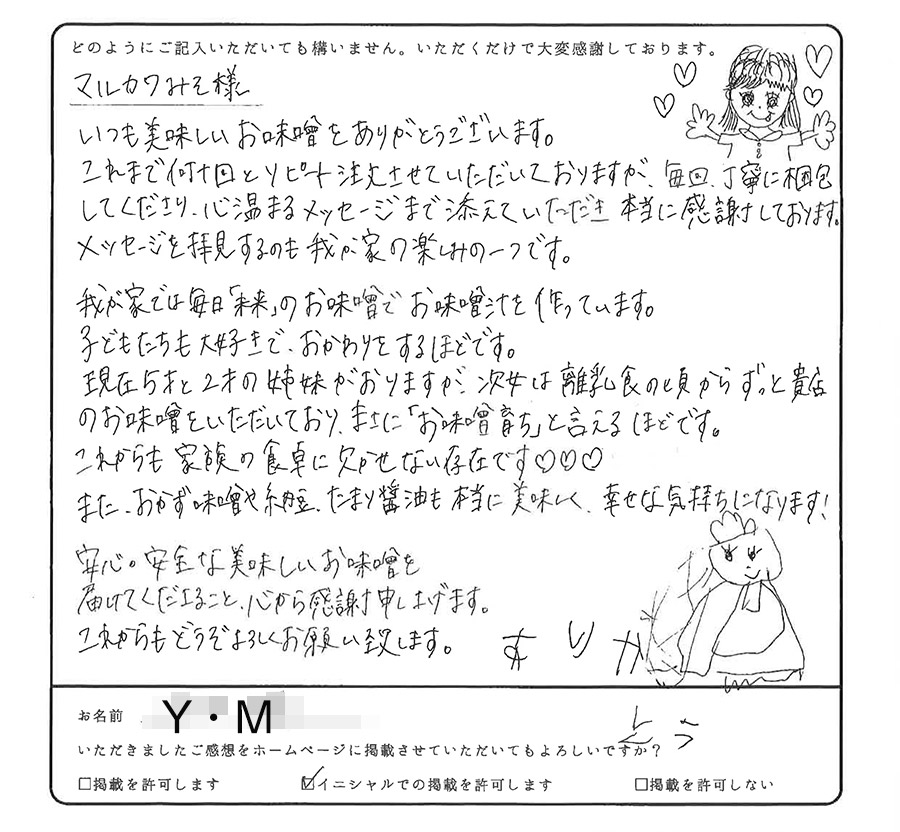 どのようにご記入いただいても構いません。いただくだけで大変感謝しております。
マルカワみそ様
いつも美味しいお味噌をありがとうございます。
これまで何十回とリピート注文させていただいておりますが、毎回、丁寧に梱包
してくださり、心温まるメッセージまで添えていただき本当に感謝しております。
メッセージを拝見するのも我が家の楽しみの一つです。
我が家では毎日「未来」のお味噌でお味噌汁を作っています。
子どもたちも大好きで、おかわりをするほどです。
現在5才と2才の姉妹がおりますが、次女は離乳食の頃からずっと貴店
のお味噌をいただいており、まさに「お味噌育ち」と言えるほどです。
これからも家族の食卓に欠かせない存在です♡♡♡
また、おかず味噌や納豆、たまり醤油も本当に美味しく、幸せな気持ちになります!
安心・安全な美味しいお味噌を
届けてくださること、心から感謝申し上げます。
これからもどうぞよろしくお願い致します。
お名前 Y・M
いただきましたご感想をホームページに掲載させていただいてもよろしいですか?
□掲載を許可します ☑イニシャルでの掲載を許可します □掲載を許可しない